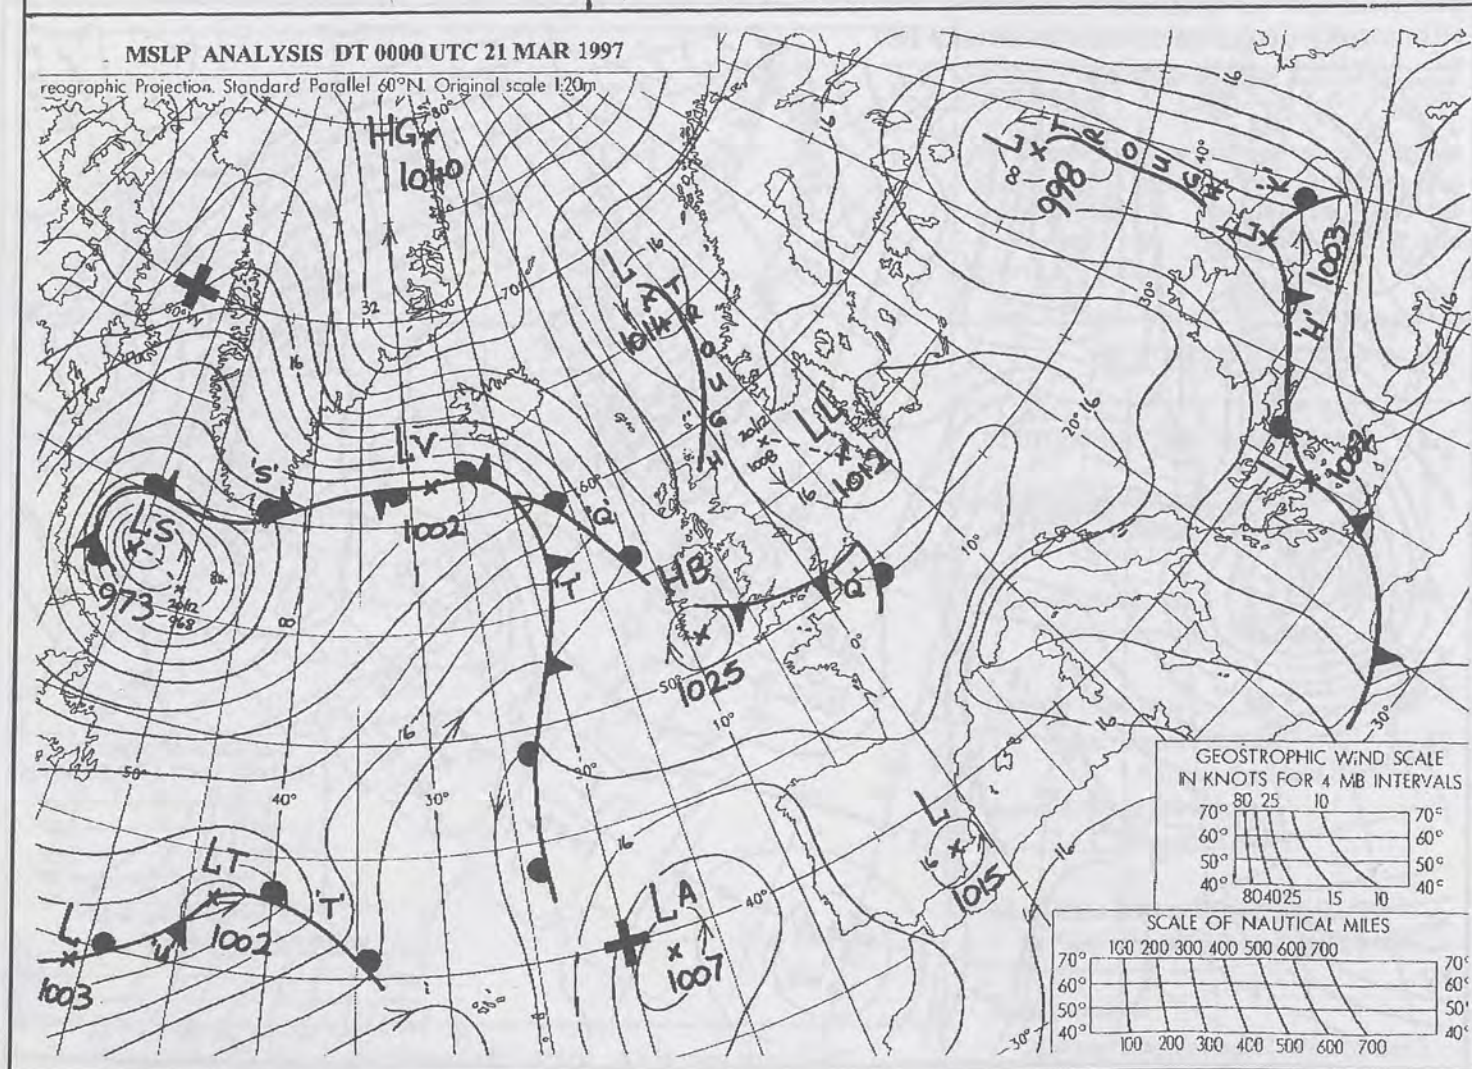 MSLP ANALYSIS DT 0000 UTC 21 MAR 1997
reographic Projection. Standard Parallel 60°N. Original scale 1:20m
80°
HG
1040
16
16
16
L
998
80
TROUGH
40°
'K'
L
1003
'H'
30°
60°W
32
70°
16
L
1014
TROUGH
16
LL
1012
20/12
1008
16
20°
16
L
1002
LV
1002
'S'
60°
'Q'
LS
973
20/12
968
84
8
'T'
HB
1025
'Q'
10°
0°
50°
10°
16
30°
16
50°
40°
30°
20°
16
LT
1002
'T'
L
1003
'U'
16
LA
1007
40°
L
16
1015
16
30°
GEOSTROPHIC WIND SCALE
IN KNOTS FOR 4 MB INTERVALS
80 25 10
70° 70°
60° 60°
50° 50°
40° 40°
80 40 25 15 10
SCALE OF NAUTICAL MILES
100 200 300 400 500 600 700
70° 70°
60° 60°
50° 50°
40° 40°
100 200 300 400 500 600 700